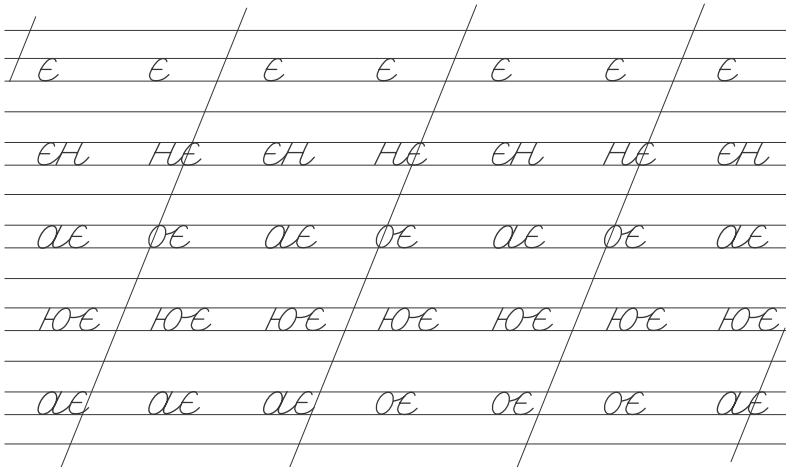 є є є є є є є
єн нє єн нє єн нє єн
ає оє ає оє ає оє ає
ює ює ює ює ює ює ює
ає ає ає оє оє оє ає